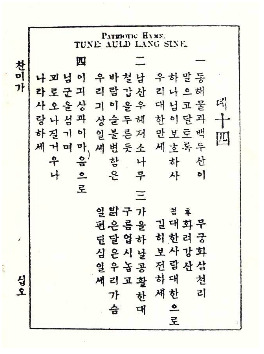 PATRIOTIC HYMN.
TUNE: AULD LANG SINE.
뎨十四
一 동해물과백두산이
말으고달토록
하나님이보호하사
우리대한만세
무궁화삼천리
화려강산
대한사람대한으로
길히보전하세
二 남산우헤져소나무
철갑을두른듯
바람이슬불변함은
우리긔상일세
三 가을하날공활한대
구름업시놉고
밝은달은우리가슴
일편단심일세
四 이긔상과이마음으로
님군을섬기며
괴로오나질거우나
나라사랑하세
찬미가
십오